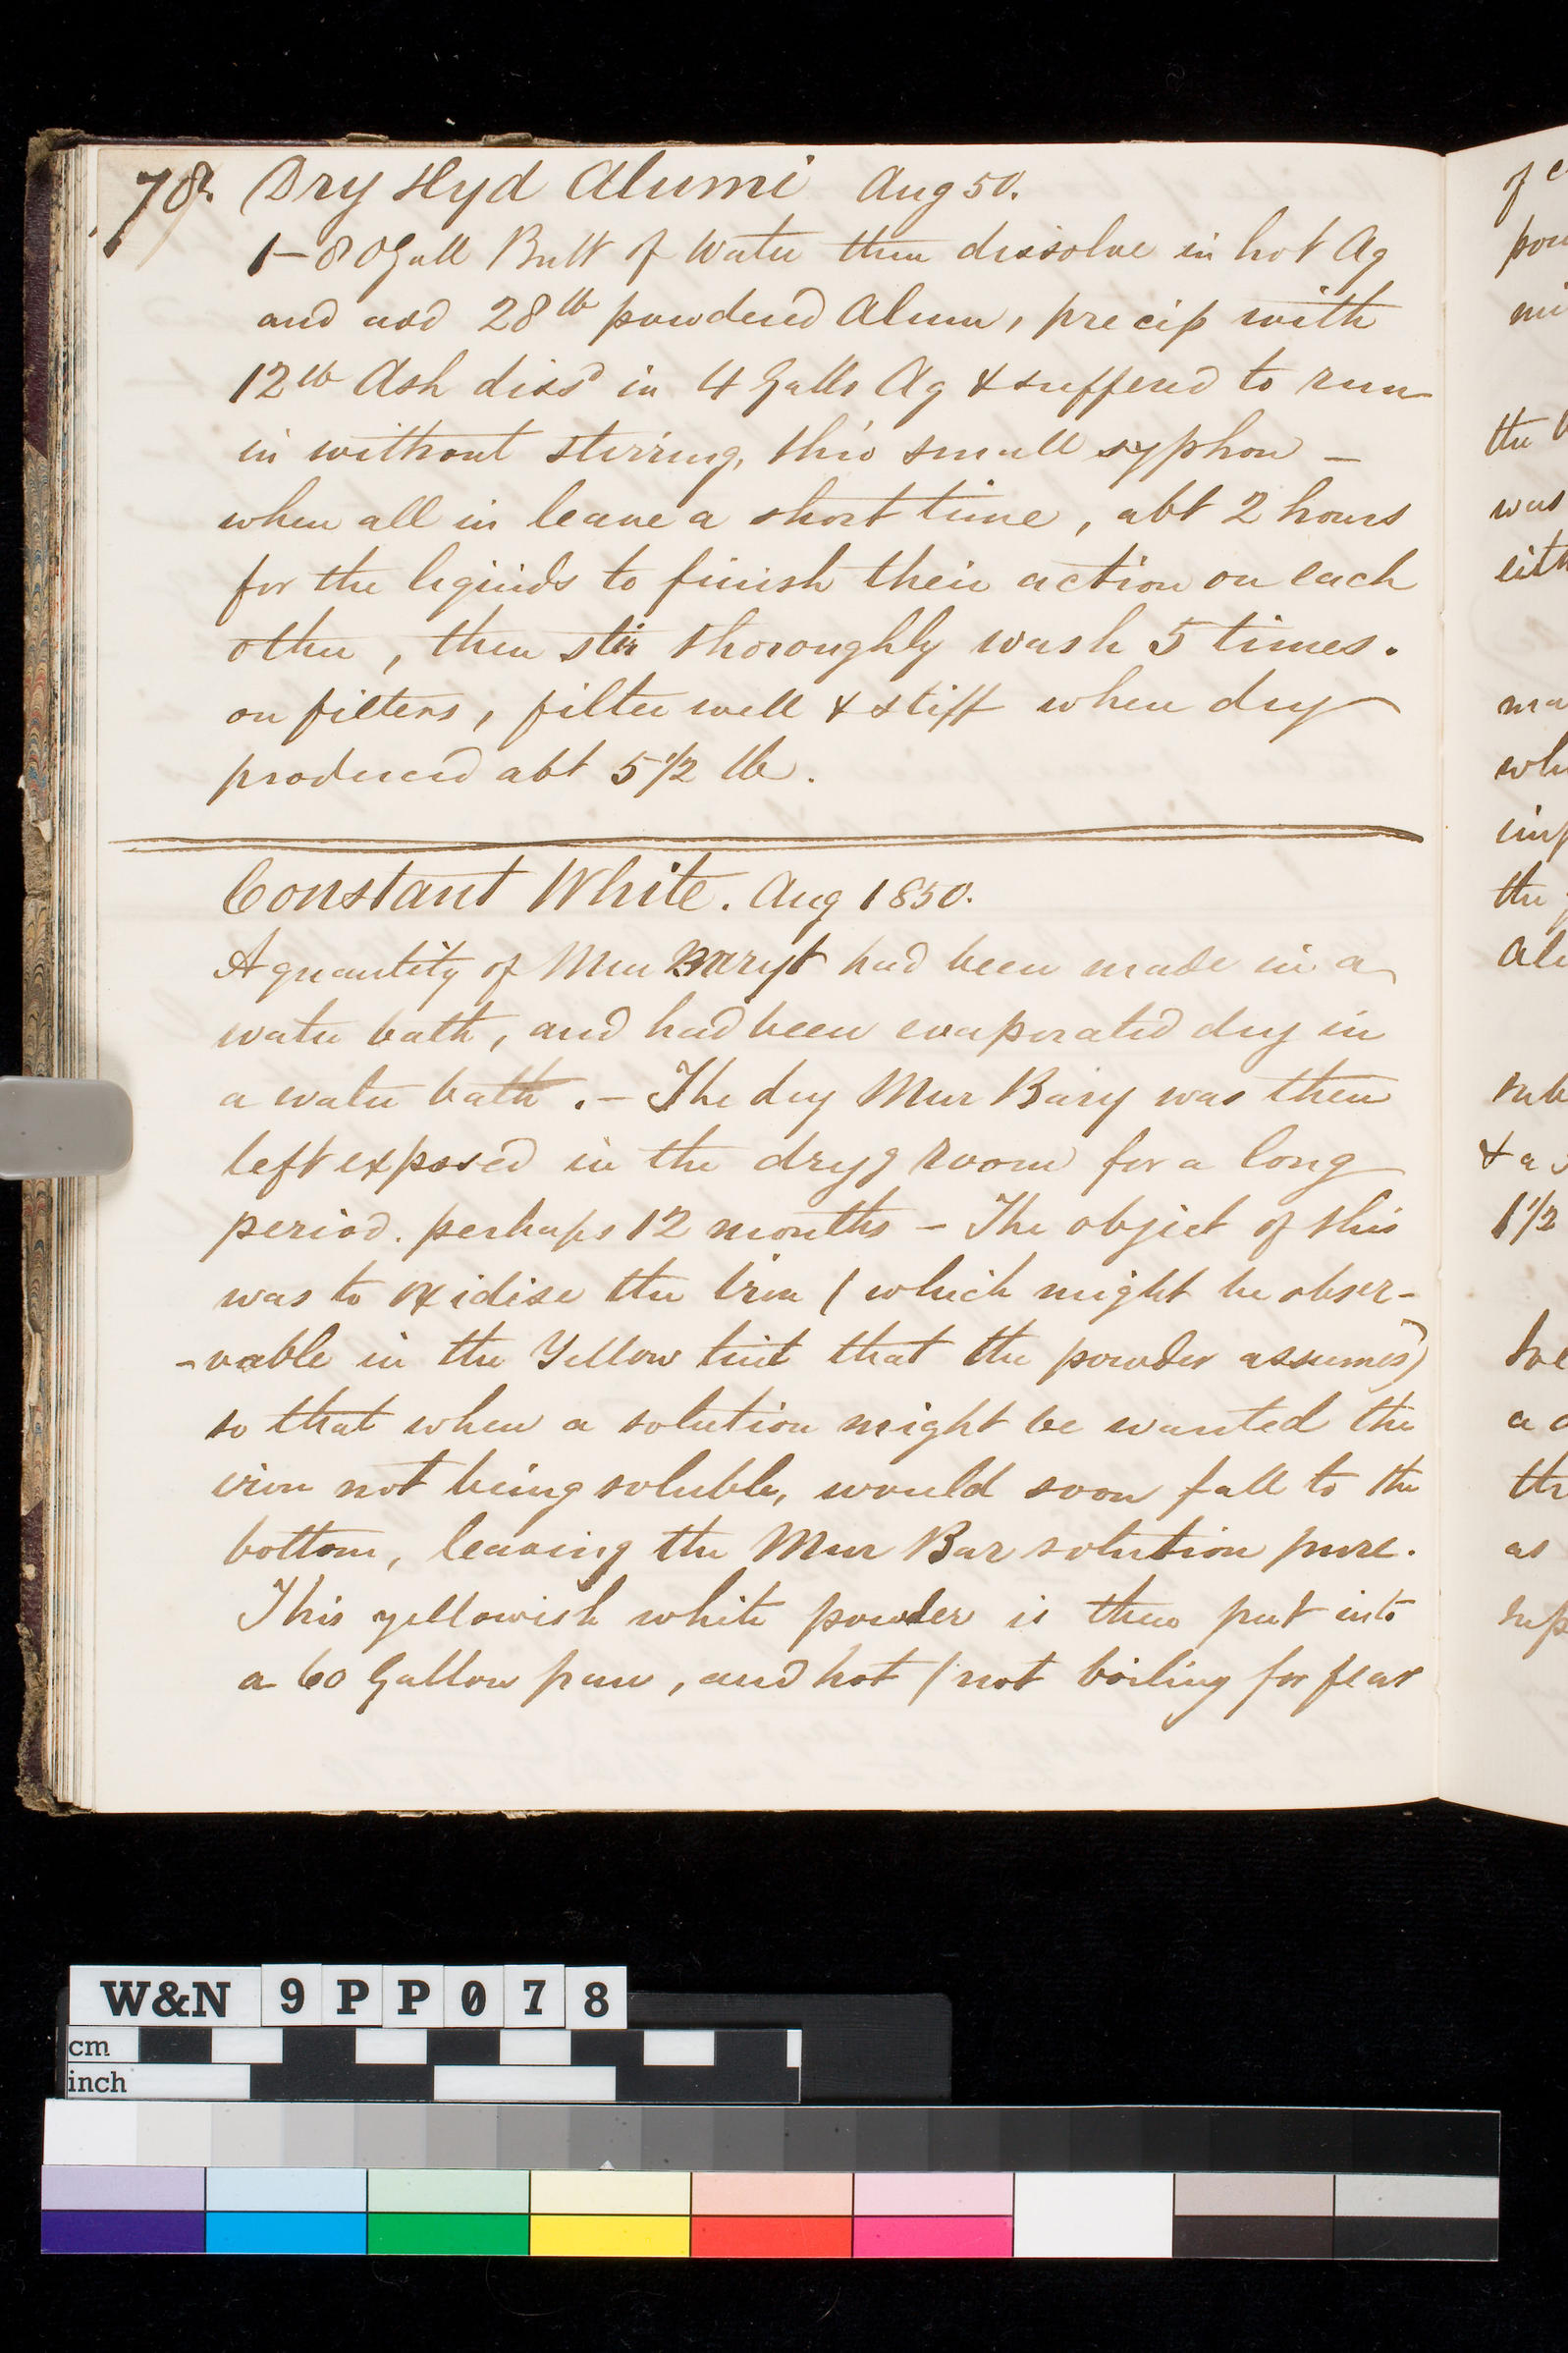 78. Dry Hyd Alumi Aug 50.
1-80 Gall Butt of Water then dissolve in hot Aq
and add 28 lb powdered Alum, precip with
12 lb Ash dissd in 4 Galls Aq & suffered to run
in without stirring, thro small syphon –
when all in leave a short time, abt 2 hours
for the liquids to finish their action on each
other, then stir thoroughly wash 5 times.
on filters, filter well & stiff when dry
produced abt 5 1/2 lb.
Constant White. Aug 1850.
A quantity of Mur Baryt had been made in a
water bath, and had been evaporated dry in
a water bath. – The dry Mur Bary was then
left exposed in the dryg room for a long
period. perhaps 12 months – The object of this
was to oxidise the Iron (which might be obser-
-vable in the Yellow tint that the powder assumes)
so that when a solution might be wanted the
iron not being soluble, would soon fall to the
bottom, leaving the Mur Bar solution pure.
This yellowish white powder is then put into
a 60 Gallon pan, and hot (not boiling for fear
of
the
was
the
1 1/2
a
as
W&N 9PP078
cm
inch